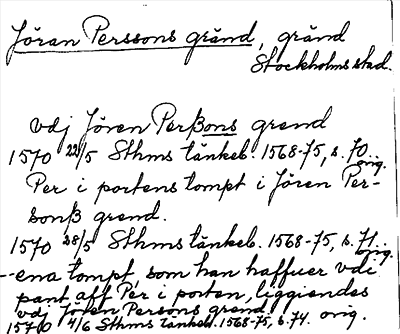 Jöran Perssons gränd, gränd
Stockholms stad.
vdj Jören Perßons grend
1570 22/5 Sthms tänkeb. 1568-75, s. 70. orig.
Per i portens tompt i Jören Per-
sonß grend.
1570 28/5 Sthms tänkeb. 1568-75, s. 71. orig.
--ena tompt, som han haffuer vdi
pant aff Per i porten, liggiendes
vdj Jören Persons grend
1570 4/6 Sthms tänkeb. 1568-75, s. 74. orig.